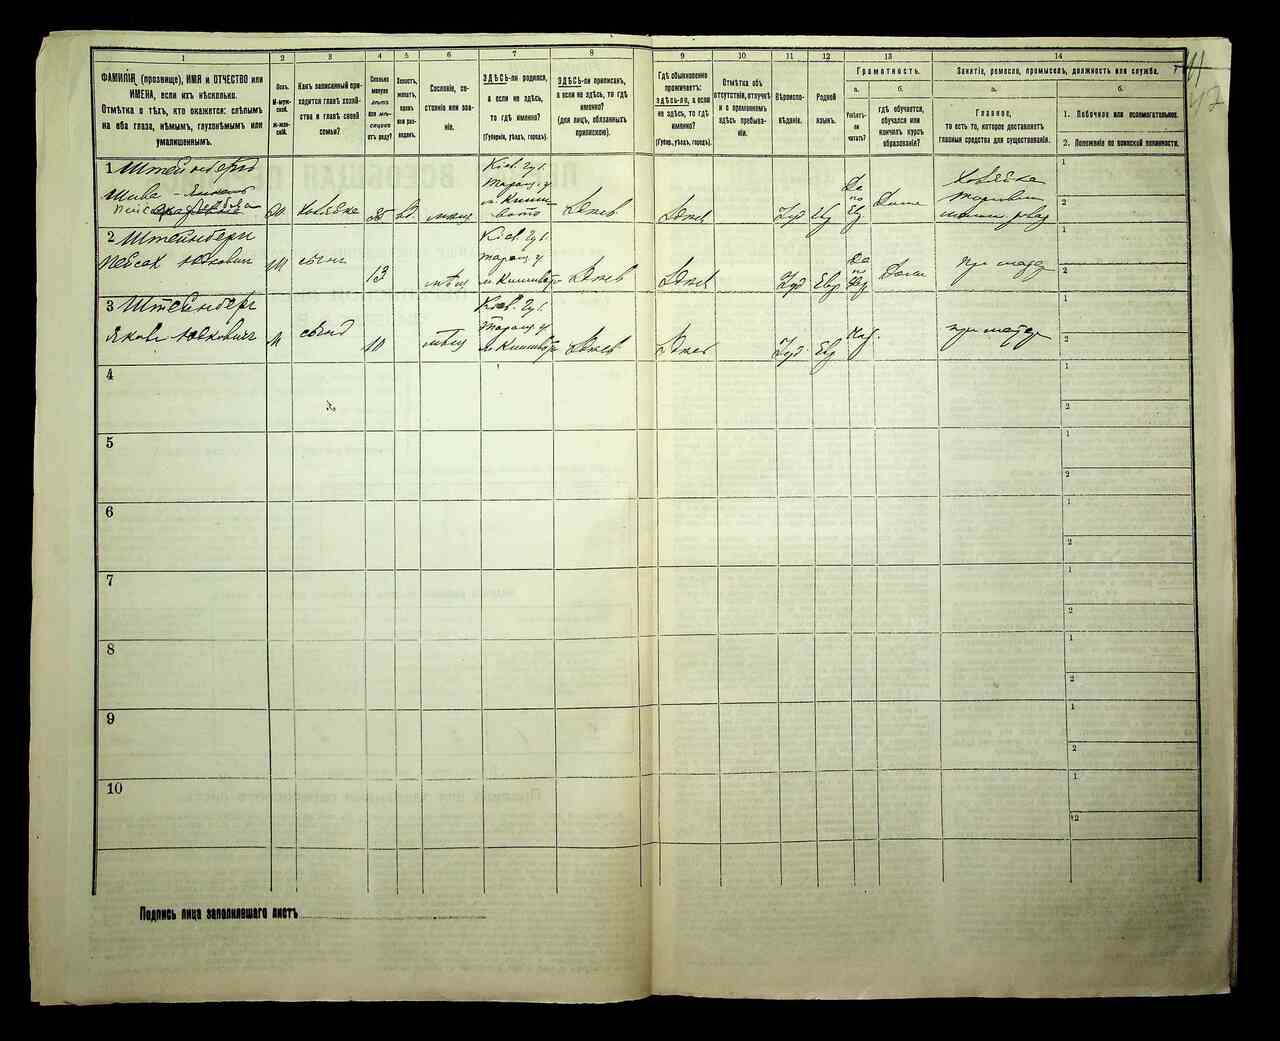 1 2 3 4 5 6 7 8 9 10 11 12 13 14
ФАМИЛІЯ, (прозвище), ИМЯ и ОТЧЕСТВО или
ИМЕНА, если ихъ нѣсколько.
Отмѣтка о тѣхъ, кто окажется: слѣпымъ
на оба глаза, нѣмымъ, глухонѣмымъ или
умалишеннымъ.
Полъ.
М-муж-
ской.
Ж-жен-
скій.
Какъ записанный при-
ходится главѣ хозяй-
ства и главѣ своей
семьи?
Сколько
минуло
лѣтъ
или мѣ-
сяцевъ
отъ роду?
Холостъ,
женатъ,
вдовъ
или раз-
веденъ.
Сословіе, со-
стояніе или зва-
ніе.
ЗДѢСЬ-ли родился,
а если не здѣсь,
то гдѣ именно?
(Губернія, уѣздъ, городъ).
ЗДѢСЬ-ли приписанъ,
а если не здѣсь, то гдѣ
именно?
(для лицъ, обязанныхъ
припискою).
Гдѣ обыкновенно
проживаетъ:
здѣсь-ли, а если
не здѣсь, то гдѣ
именно?
(Губер., уѣздъ, городъ).
Отмѣтка объ
отсутствіи, отлучкѣ
и о временномъ
здѣсь пребыва-
ніи.
Вѣроиспо-
вѣданіе.
Родной
языкъ.
Грамотность.
а. б.
Умѣетъ-
ли
читать?
гдѣ обучается,
обучался или
кончилъ курсъ
образованія?
Занятіе, ремесло, промыселъ, должность или служба.
а. б.
Главное,
то есть то, которое доставляетъ
главныя средства для существованія.
1. Побочное или вспомогательное.
2. Положеніе по воинской повинности.
1 Штейнберг
Шива
ж хозяйка 35 вд. мѣщ
Кіев. Губ.
Таращ у
м Кишин-
вато
Здѣсь Здѣсь Іуд Ев
Да
по
Ев
Дома
Хозяйка
1
2
2 Штейнберг
Пейсах Іосковичъ м сынъ 13 мѣщ
Кіев. Губ.
Таращ у
Здѣсь Здѣсь Іуд Евр
Да
по
Евр
Дома при матер
1
2
3 Штейнберг
Яковъ Іосковичъ м сынъ 10 мѣщ
Кіев. Губ.
Таращ у
Здѣсь Здѣсь Іуд. Евр при матер
1
2
4 1
2
5 1
2
6 1
2
7 1
2
8 1
2
9 1
2
10 1
2
Подпись лица заполнившаго листъ